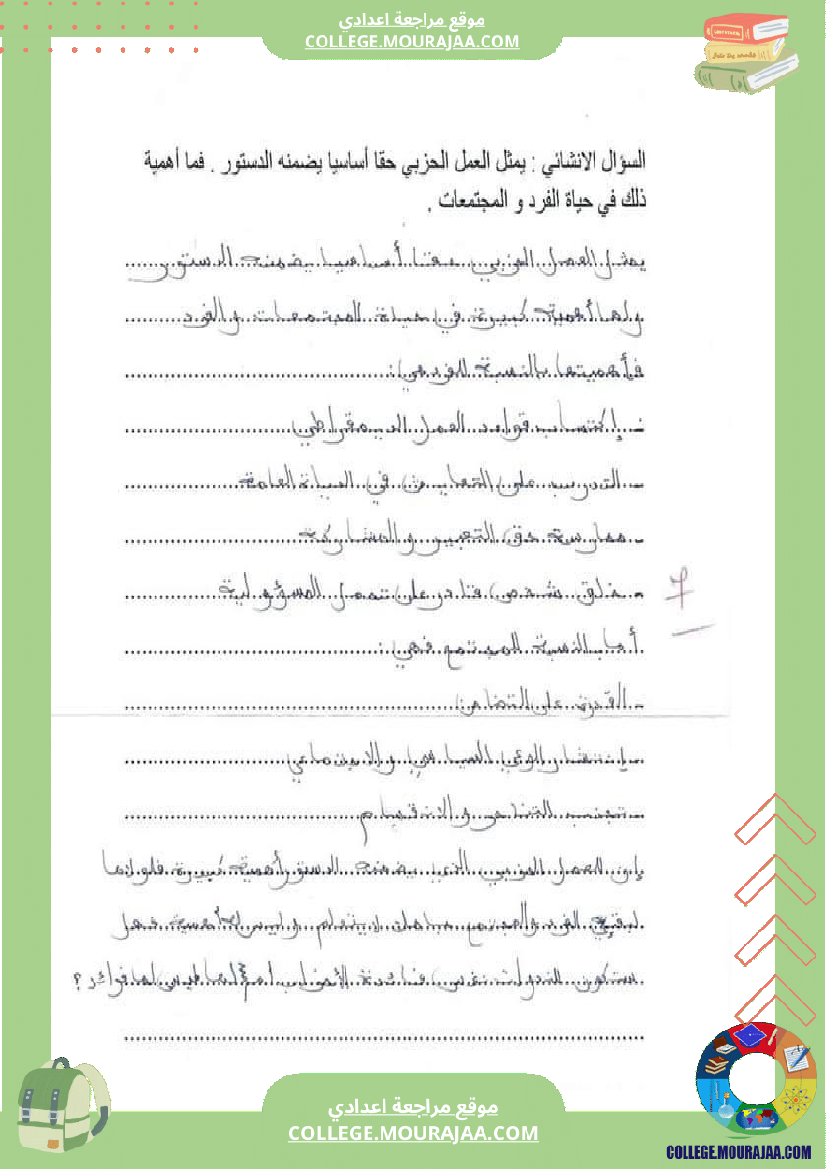 موقع مراجعة اعدادي
COLLEGE.MOURAJAA.COM
السؤال الانشائي : يمثل العمل الحزبي حقا أساسيا يضمنه الدستور . فما أهمية
ذلك في حياة الفرد و المجتمعات .
يمثل العمل الحزبي حقا أساسيا يضمنه الدستور
ولها أهمية كبيرة في حياة المجتمعات والفرد
فأهميتها بالنسبة للفرد هي :
- إكتساب قواعد العمل الديمقراطي
- التدريب على التعايش في الحياة العامة
- ممارسة حق التعبير والمشاركة
- خلق شخص قادر على تحمل المسؤولية
7
أما بالنسبة للمجتمع فهي :
- القدرة على التضامن
- إنتشار الوعي السياسي والاجتماعي
- تجنب التناحر والانقسام
إن العمل الحزبي الذي يضمنه الدستور أهمية كبيرة فلولاها
لبقي الفرد والمجتمع يتعلم وليس أهمية فهل
ستكون للدولة نفس فائدة الأحزاب أم ليس لها فوائد ؟
موقع مراجعة اعدادي
COLLEGE.MOURAJAA.COM
COLLEGE.MOURAJAA.COM